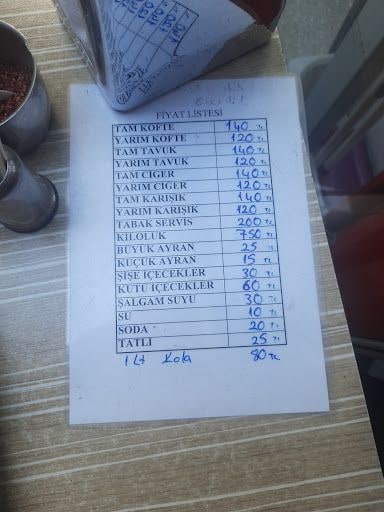 FİYAT LİSTESİ
TAM KÖFTE 140 TL
YARIM KÖFTE 120 TL
TAM TAVUK 140 TL
YARIM TAVUK 120 TL
TAM CİGER 140 TL
YARIM CİGER 120 TL
TAM KARIŞIK 140 TL
YARIM KARIŞIK 120 TL
TABAK SERVİS 200 TL
KİLOLUK 750 TL
BÜYÜK AYRAN 25 TL
KÜÇÜK AYRAN 15 TL
ŞİŞE İÇECEKLER 30 TL
KUTU İÇECEKLER 60 TL
ŞALGAM SUYU 30 TL
SU 10 TL
SODA 20 TL
TATLI 25 TL
1 Lt Kola 80 TL